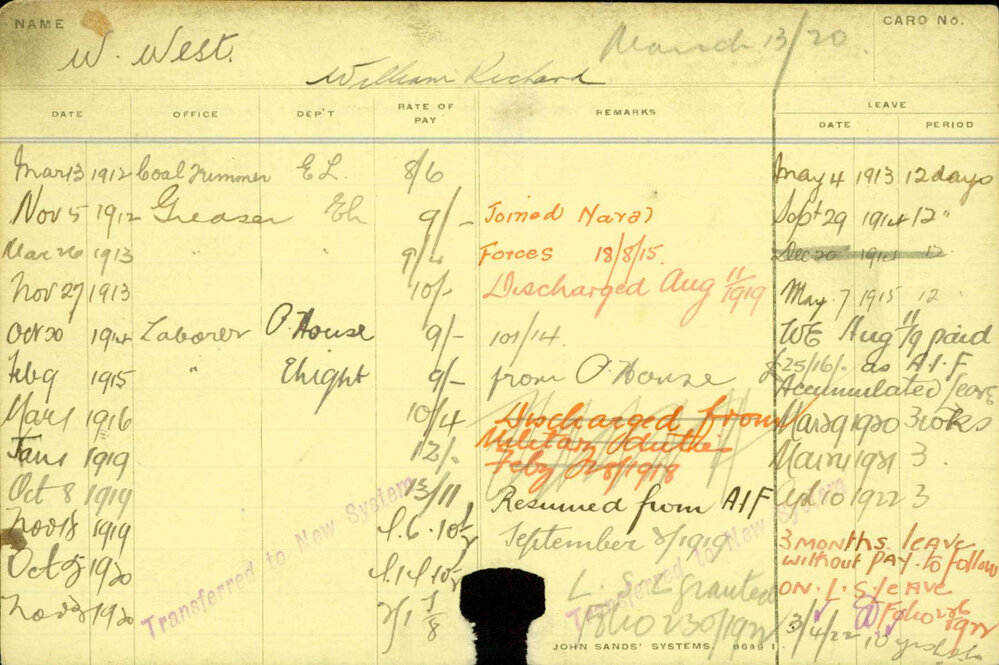 NAME
CARD No.
W. West.
March 13/20
William Richard
DATE OFFICE DEP'T RATE OF PAY REMARKS LEAVE
DATE PERIOD
Mar 13 1912 Coal Trimmer E L. 8/6 May 4 1913 12 days
Nov 5 1912 Greaser 9/- Joined Naval Sept 29 1914 12 "
Mar 26 1913 " " Forces 18/8/15. Dec 20 1914 12
Nov 27 1913 10/- Discharged Aug 11/1919 May 7 1915 12 "
Oct 20 1914 Laborer P. House 9/- 101/14. WE Aug 11/19 paid
Feb 9 1915 " Ehight 9/- from P. House £25/16/- as A.I.F
Accumulated leave
Mar 1 1916 10/4 Discharged from Mar 29 1920 3 wks
Military duties
Jan 1 1919 12/- Feby 28/1918 1921 3
Oct 8 1919 13/11 Resumed from AIF 1922 3
Nov 18 1919 September 8/1919 3 months leave
without pay to follow
Oct 1920 L. S. L granted on L. S leave
Nov 1920 Folio 230/1922 3/4/22
Transferred to New System
Transferred to New System
JOHN SANDS' SYSTEMS. 8689 1.